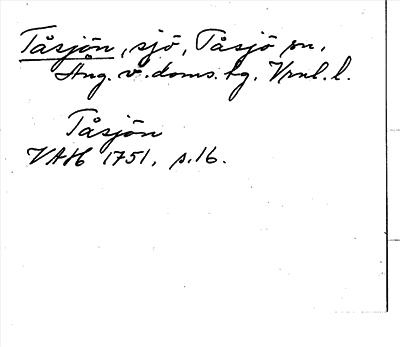 Tåsjön, sjö, Tåsjö sn,
Ång. v. doms. hg. Vrnl. l.
Tåsjön
VAH 1751, s. 16.